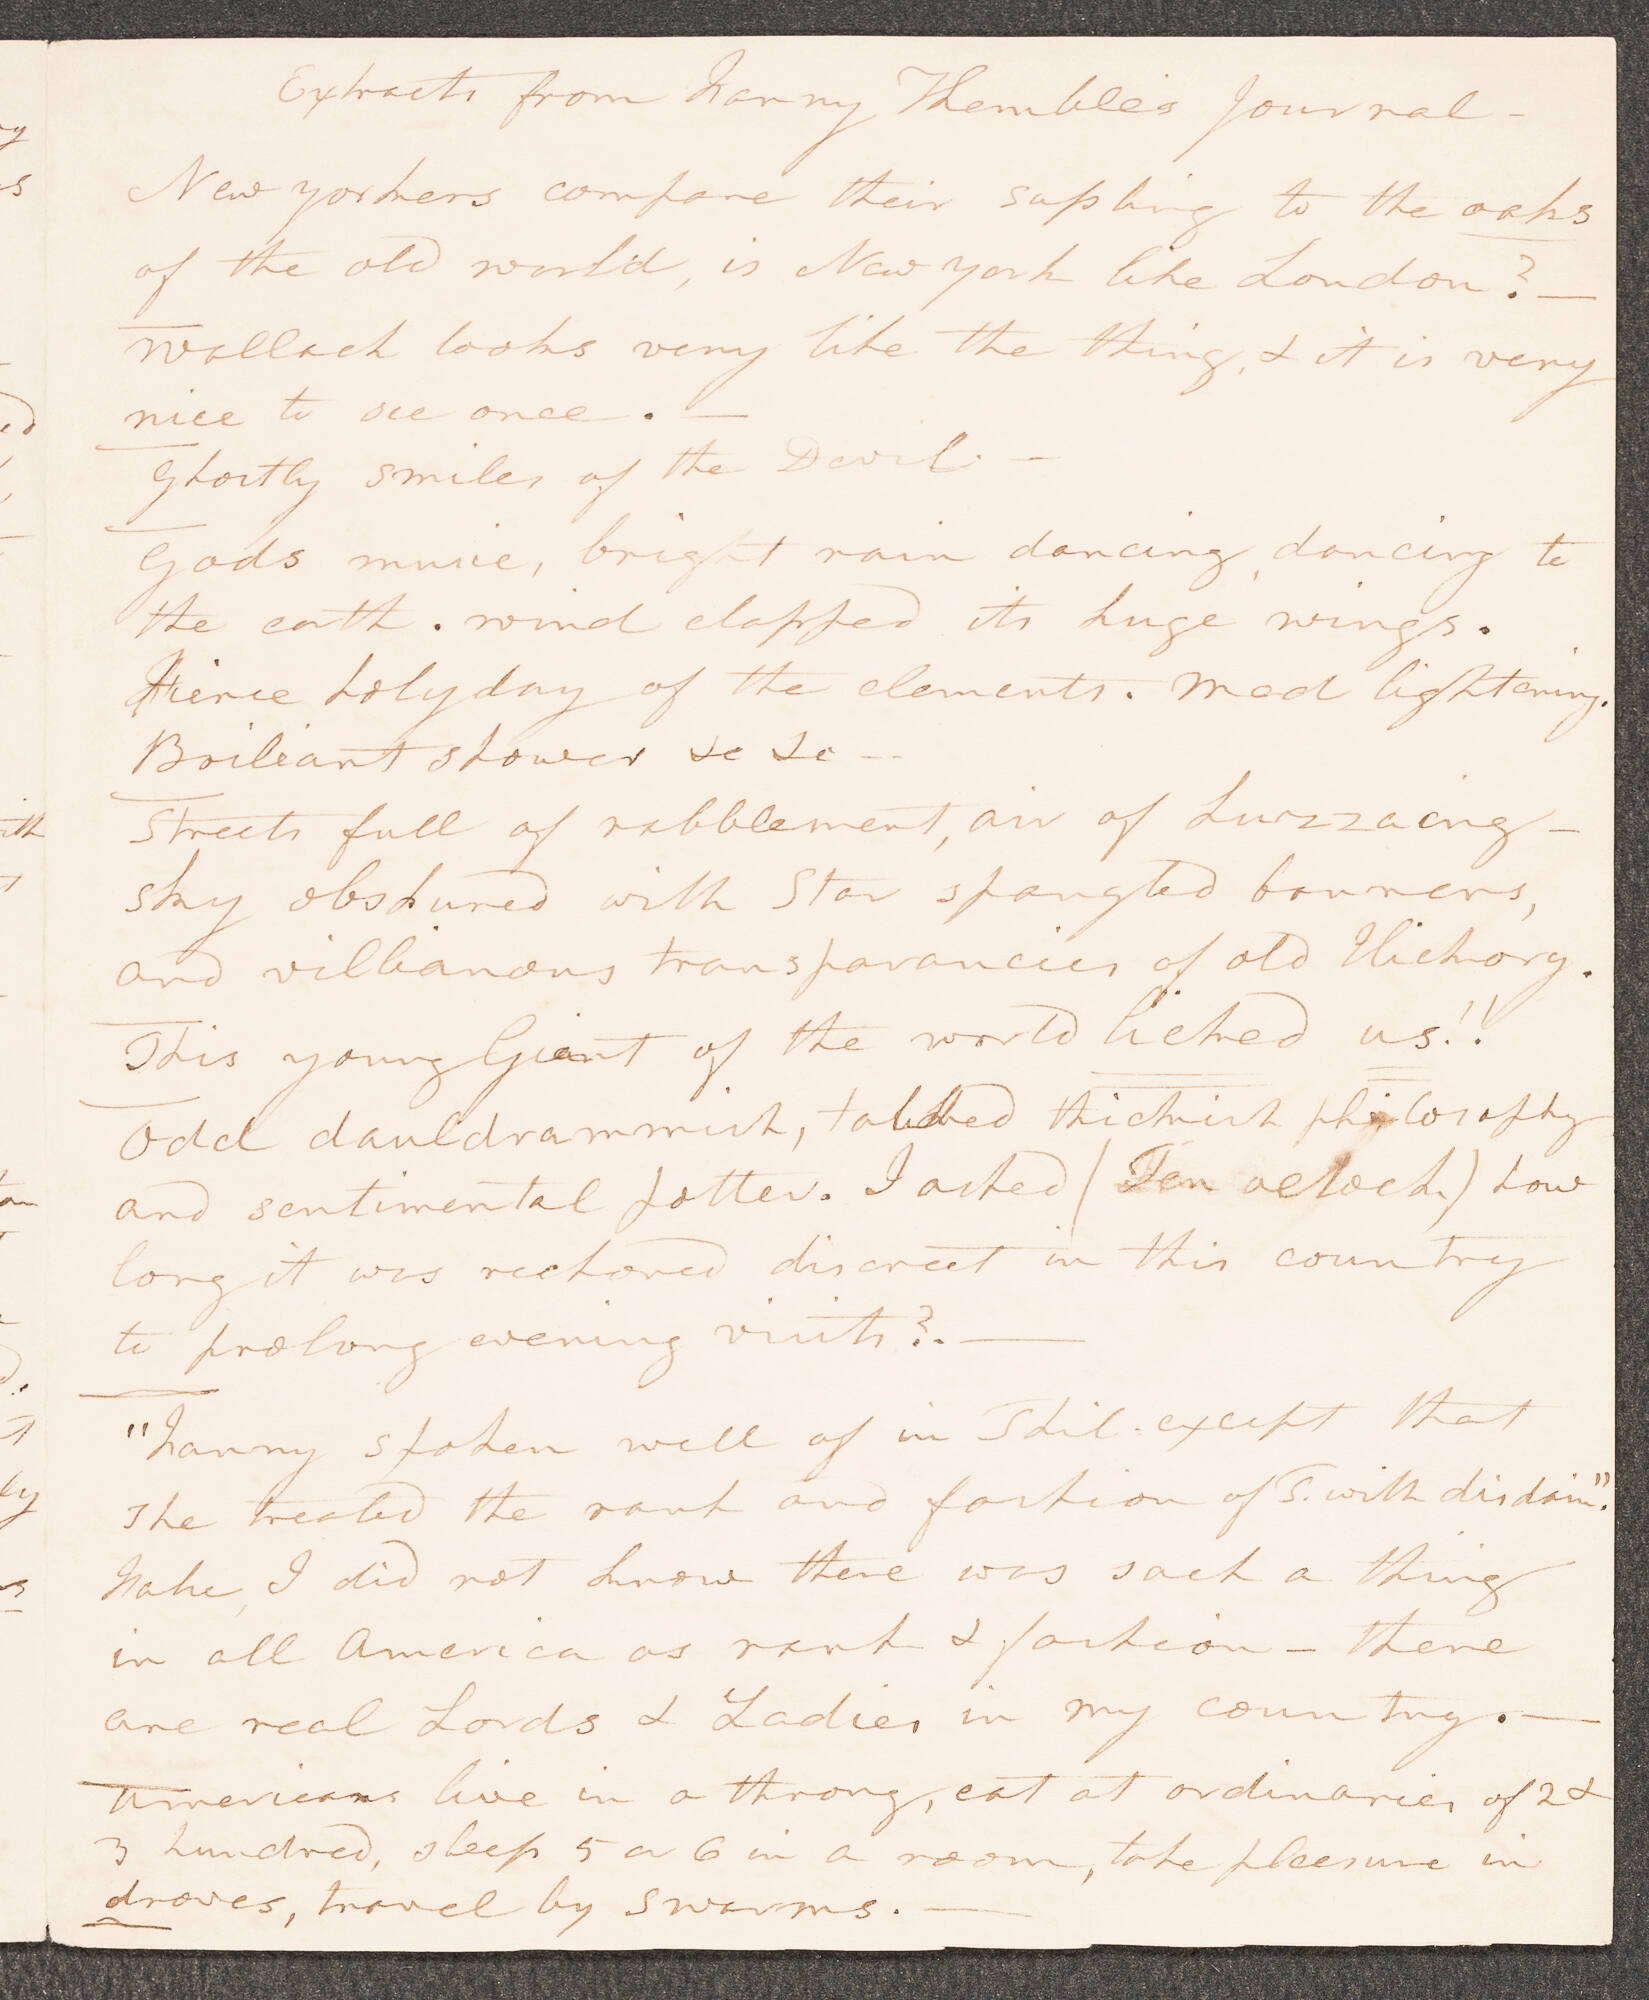 Extracts from Fanny Khembles Journal -
New yorkers compare their sapling to the oaks
of the old world, is New york like London? —
Wallack looks very like the thing, & it is very
nice to see once. —
Ghostly smiles of the Devil. -
Gods music, bright rain dancing, dancing to
the earth. wind clapped its huge wings.
Fierce holyday of the elements. Mad lightening.
Briliant shower &c &c --
Streets full of rabblement, air of huzzaing -
sky obskured with Star spangled banners,
and villianous transparancies of old Hickory.
This young Giant of the world licked us!!
Odd dauldrammish, talked thickish philosophy
and sentimental potter. I asked (Ten oclock.) how
long it was reckoned discreet in this country
to prolong evening visits?. —
"Fanny spoken well of in Phil. except that
She treated the rank and fashion of P. with disdain".
Fake, I did not know there was sach a thing
in all America as rank & fashion - there
are real Lords & Ladies in my country. —
Americans live in a throng, eat at ordinaries of 2 &
3 hundred, sleep 5 or 6 in a room, take pleesure in
droves, travel by swarms. —